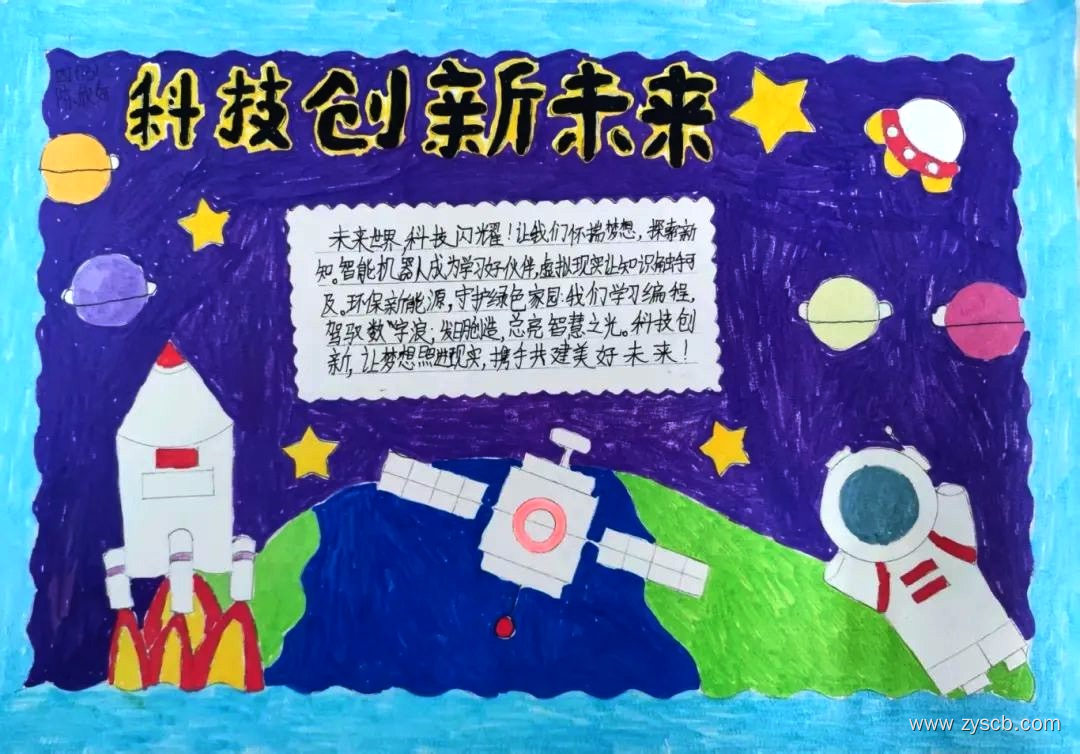 科技创新未来
未来世界,科技闪耀!让我们怀揣梦想,探索新
知。智能机器人成为学习好伙伴,虚拟现实让知识触手可
及。环保新能源,守护绿色家园。我们学习编程,
驾驭数字浪;发明创造,点亮智慧之光。科技创
新,让梦想照进现实,携手共建美好未来!
www.zyscb.com